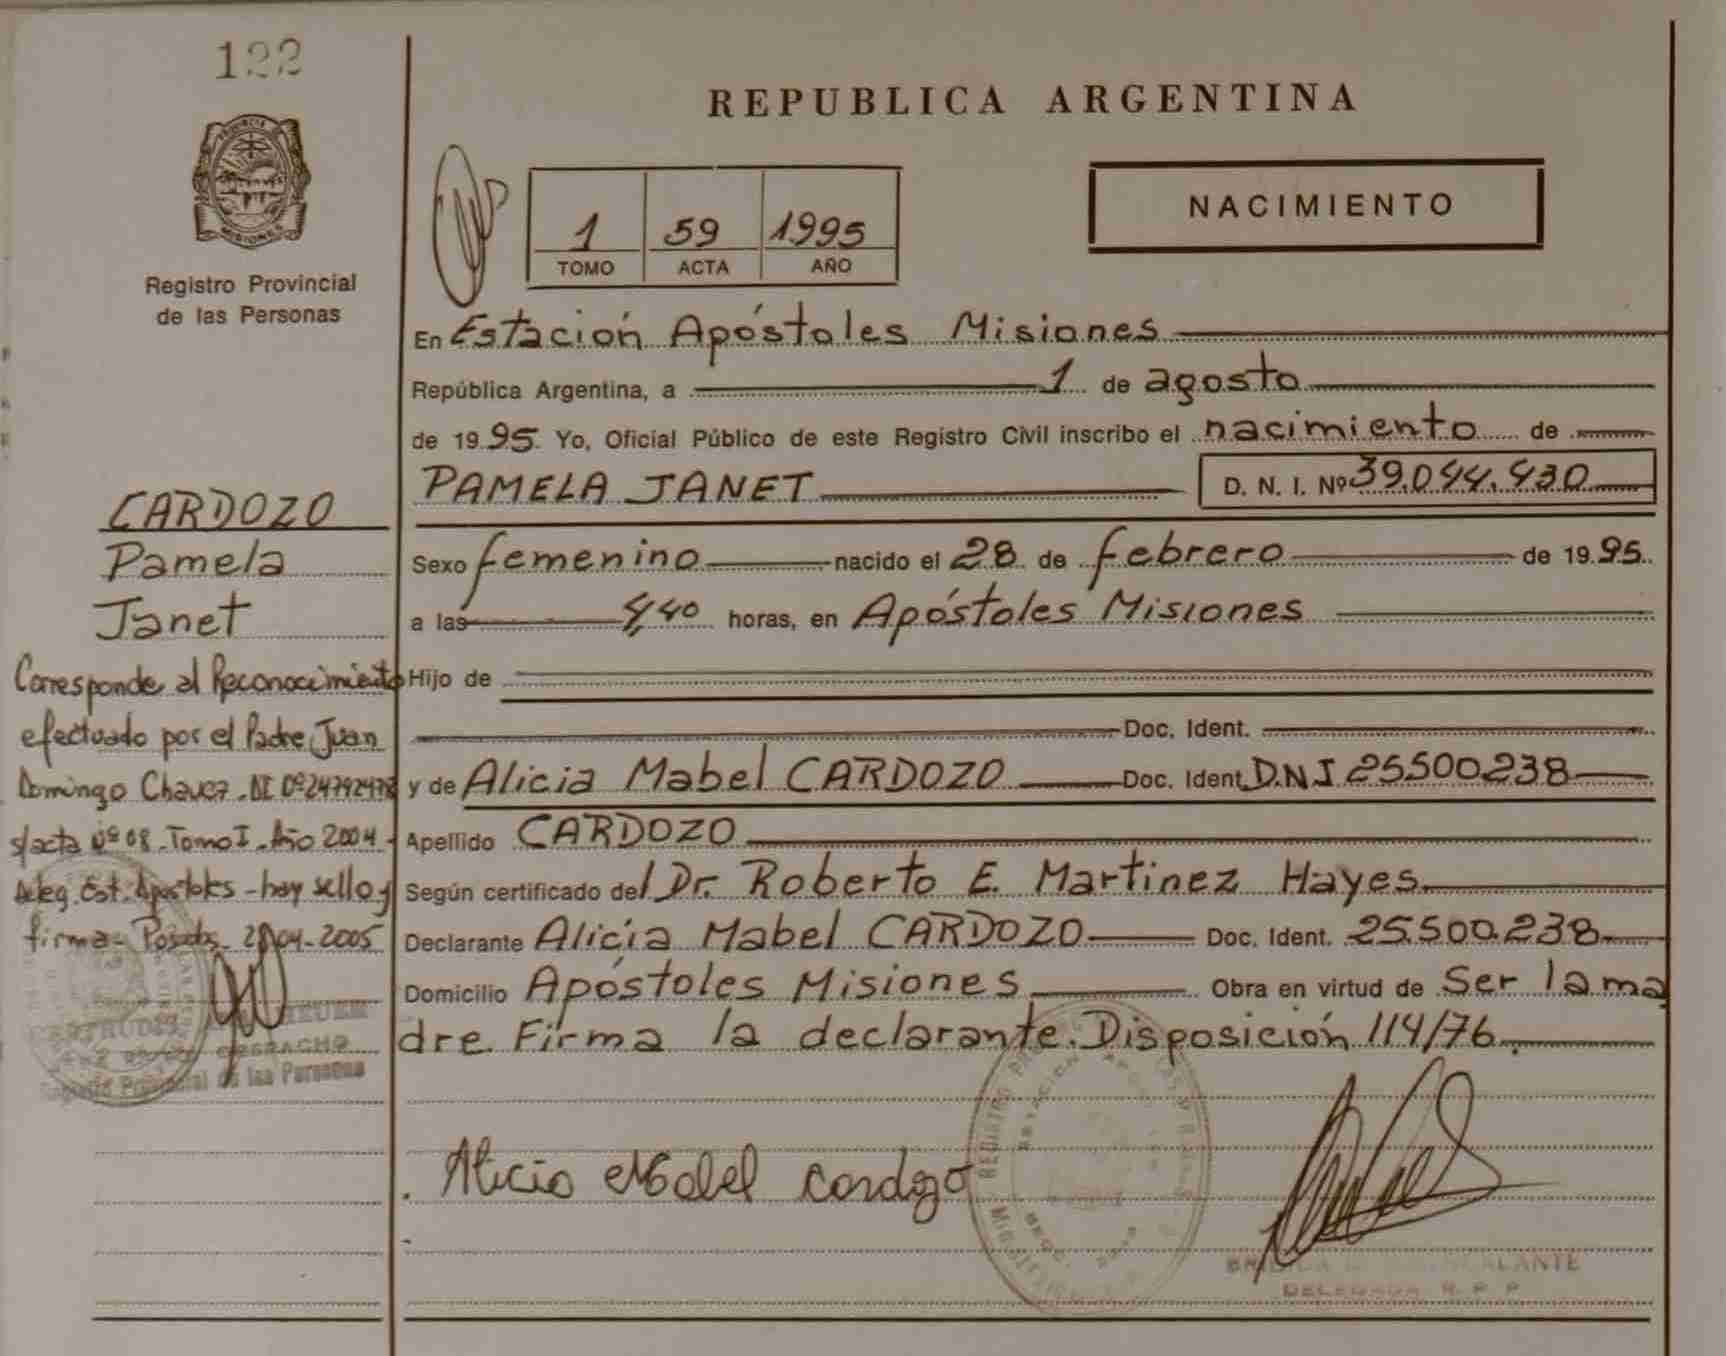 122
PROVINCIA DE
MISIONES
Registro Provincial
de las Personas
CARDOZO
Pamela
Janet
Corresponde al Reconocimiento
efectuado por el Padre Juan
Domingo Chavez
s/acta Nº 08. Tomo I. Año 2004 -
Deleg. Est. Apostoles - hay sello y
firma - Posadas - 04-2005
DESPACHO
Provincial de las Personas
REPUBLICA ARGENTINA
NACIMIENTO
1 59 1995
TOMO ACTA AÑO
En Estación Apóstoles Misiones
República Argentina, a 1 de agosto
de 1995. Yo, Oficial Público de este Registro Civil inscribo el nacimiento de
PAMELA JANET D. N. I. Nº 39.044.430
Sexo femenino nacido el 28 de febrero de 1995.
a las 4,40 horas, en Apóstoles Misiones
Hijo de
Doc. Ident.
y de Alicia Mabel CARDOZO Doc. Ident. D.N.I 25500238
Apellido CARDOZO
Según certificado del Dr. Roberto E. Martinez Hayes
Declarante Alicia Mabel CARDOZO Doc. Ident. 25.500.238
Domicilio Apóstoles Misiones Obra en virtud de Ser la ma
dre. Firma la declarante. Disposición 114/76.
Alicia Mabel Cardozo
REGISTRO
DELEGADA R. P. P.